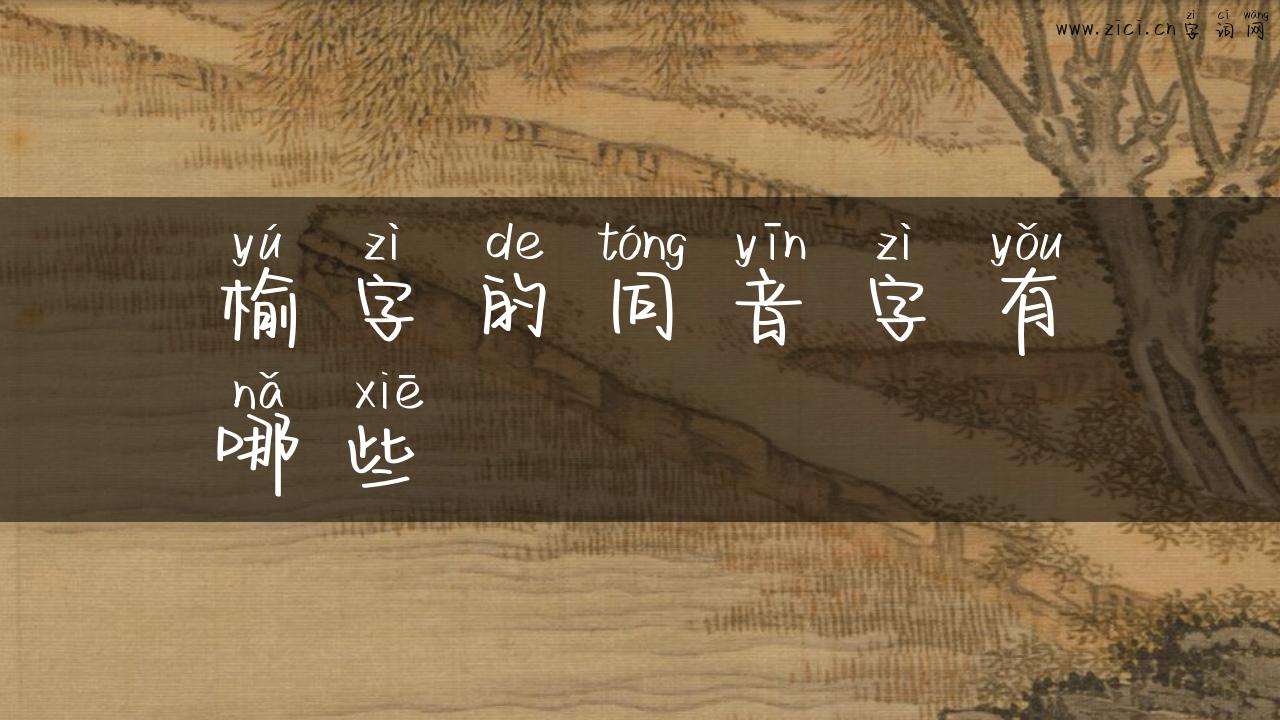 zì cí wǎng
www.zici.cn字词网
yú zì de tóng yīn zì yǒu
榆字的同音字有
nǎ xiē
哪些